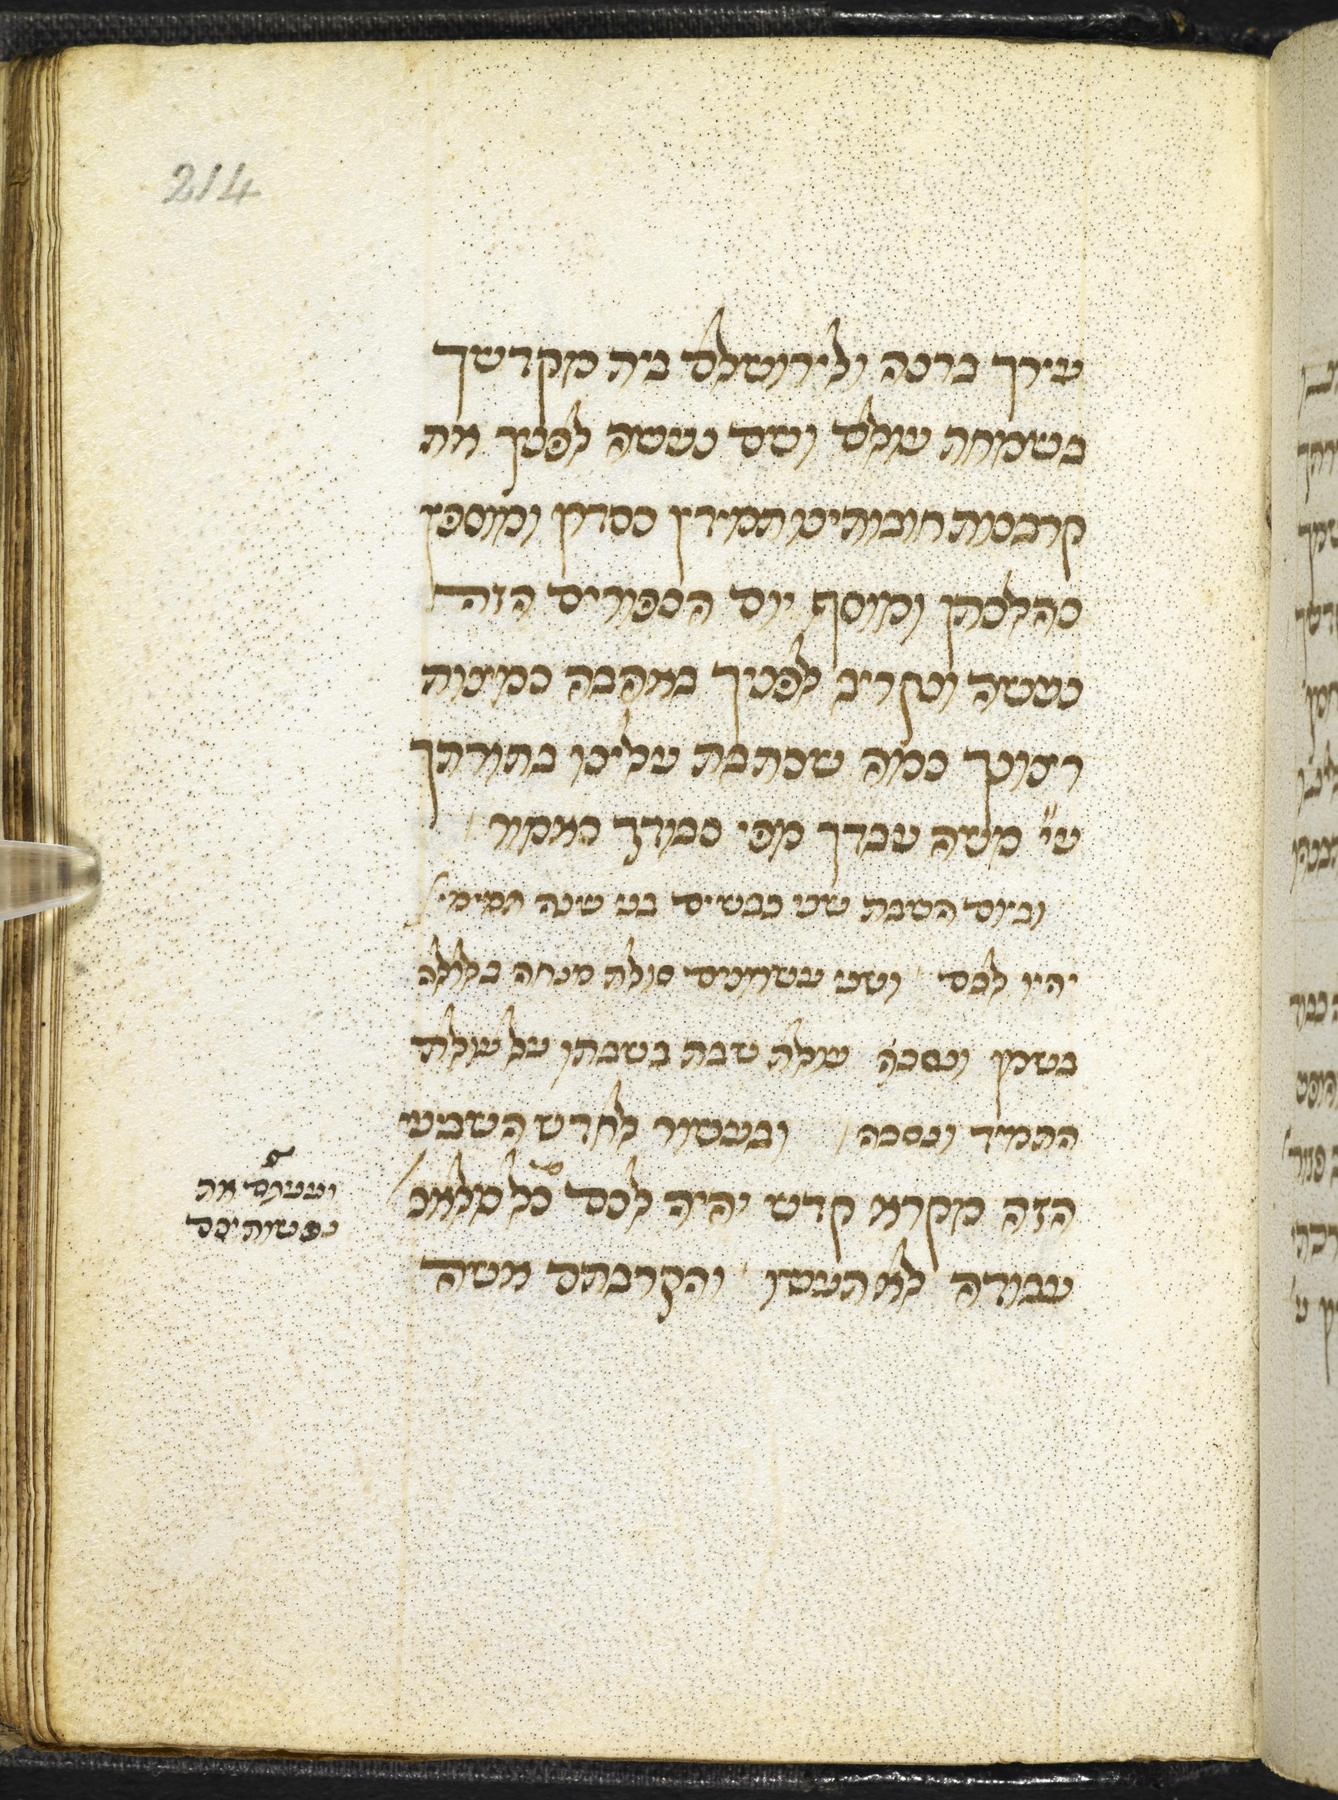 214
עירך ברנה ולירושלם בית מקדשך
בשמחת עולם ושם נעשה לפניך את
קרבנות חובותינו תמידין כסדרן ומוספין
כהלכתן ומוסף יום הכפורים הזה
נעשה ונקריב לפניך באהבה כמצות
רצונך כמה שכתבת עלינו בתורתך
ע״י משה עבדך מפי כבודך כאמור
וביום השבת שני כבשים בני שנה תמימי׳
יהיו לכם ושני עשרונים סולת מנחה בלולה
בשמן ונסכה עולת שבת בשבתו על עולת
התמיד ונסכה ובעשור לחדש השביעי
הזה מקרא קדש יהיה לכם כל מלאכ׳
עבודה לא תעשו והקרבתם אשה
ועניתם את
נפשותיכם